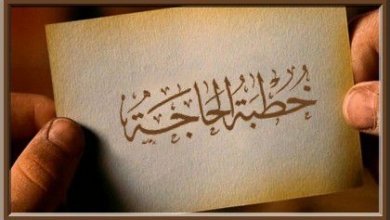 خُطبَةُ الحَاجَةِ